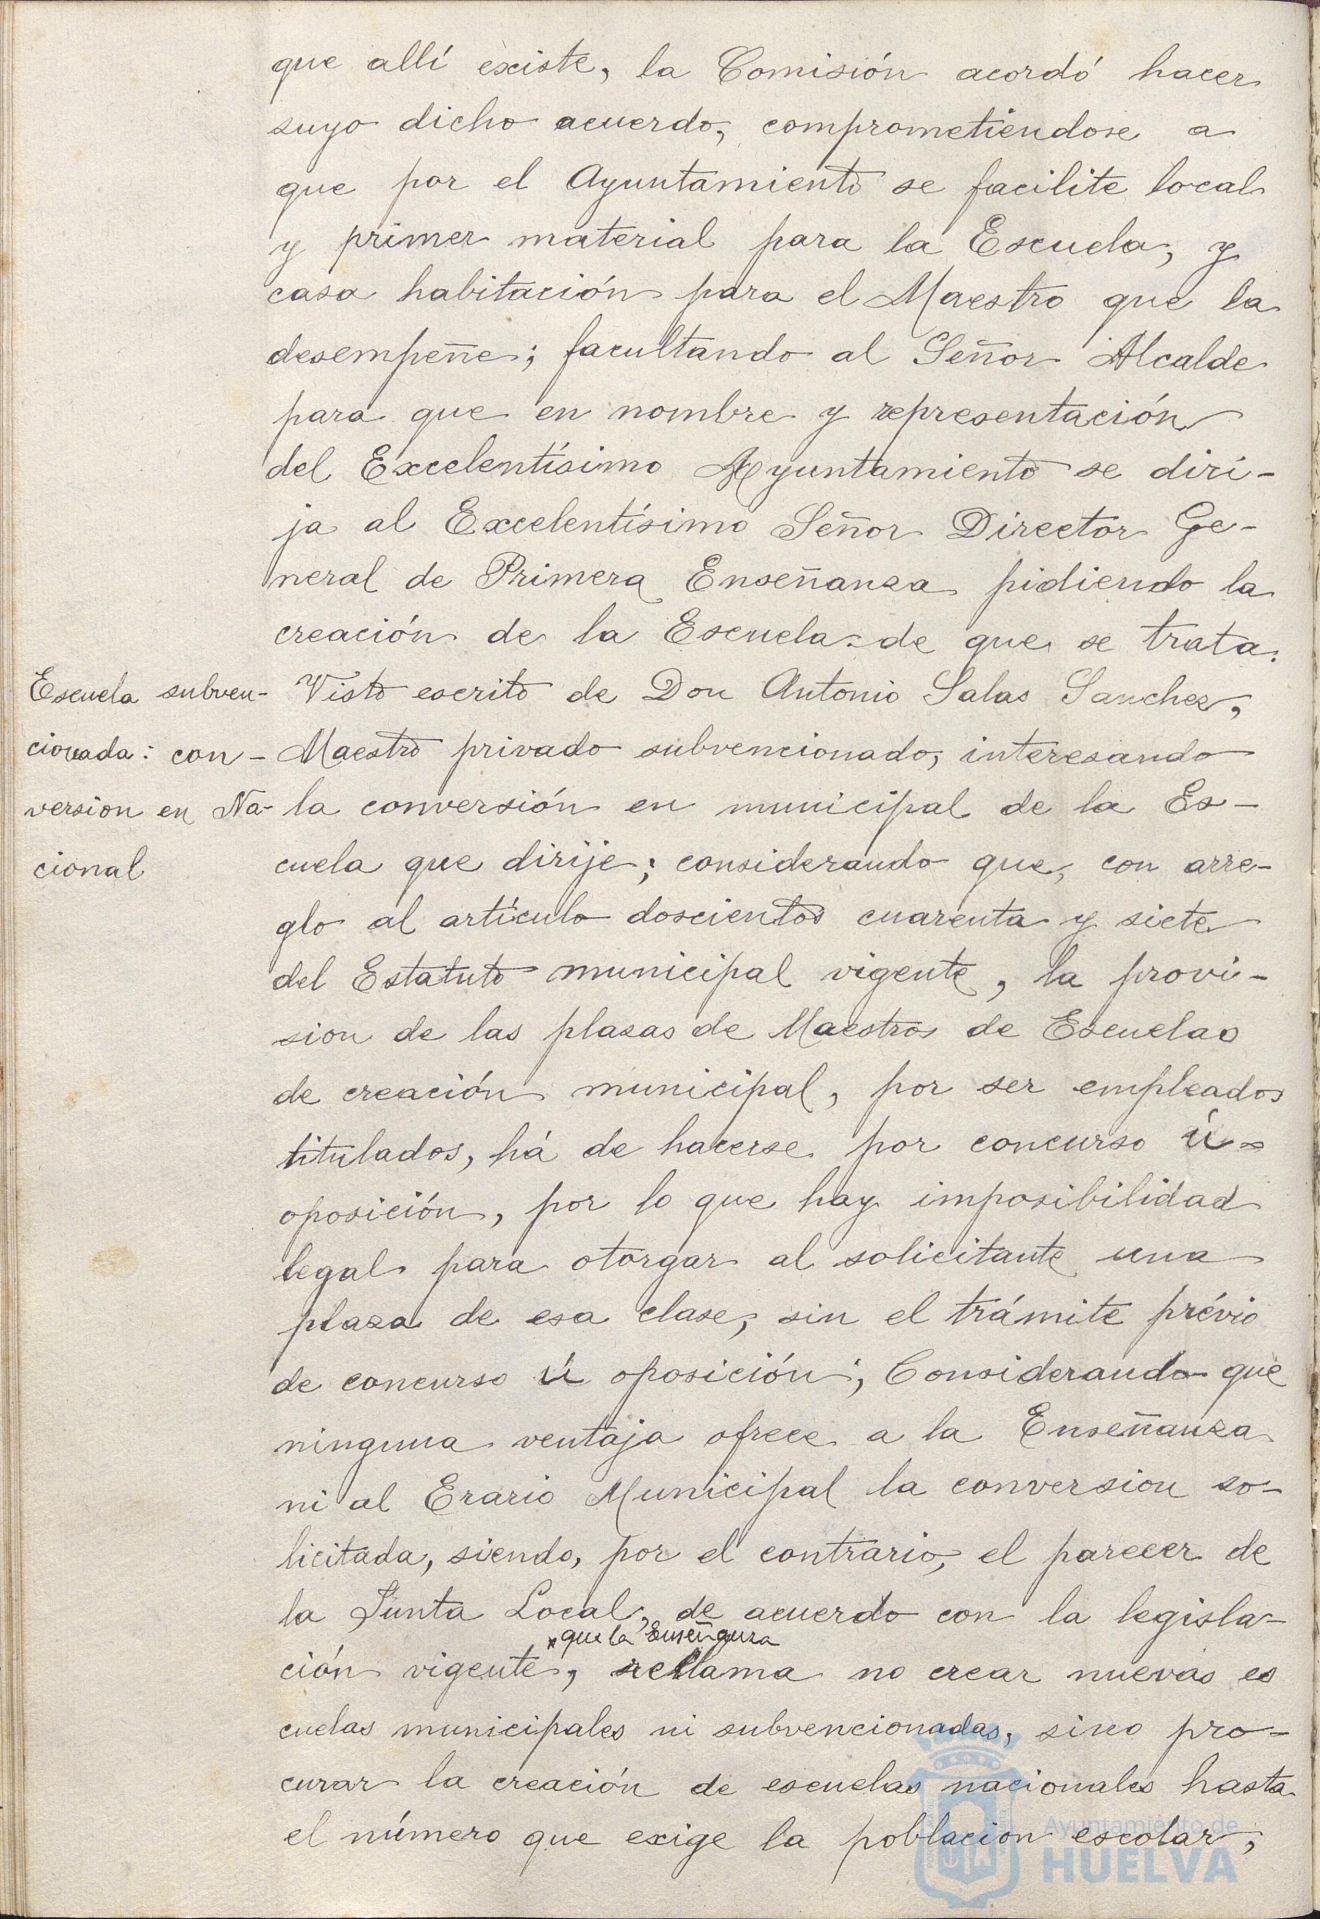 que allí existe, la Comisión acordó hacer
suyo dicho acuerdo, comprometiendose a
que por el Ayuntamiento se facilite local
y primer material para la Escuela, y
casa habitación para el Maestro que la
desempeñe; facultando al Señor Alcalde
para que en nombre y representación
del Excelentísimo Ayuntamiento se diri-
ja al Excelentísimo Señor Director Ge-
neral de Primera Enseñanza pidiendo la
creación de la Escuela de que se trata.
Escuela subven-
cionada: con-
version en Na-
cional
Visto escrito de Don Antonio Salas Sanchez,
Maestro privado subvencionado, interesando
la conversión en municipal de la Es-
cuela que dirije; considerando que, con arre-
glo al artículo doscientos cuarenta y siete
del Estatuto municipal vigente, la provi-
sion de las plazas de Maestros de Escuelas
de creación municipal, por ser empleados
titulados, há de hacerse por concurso ú-
oposición, por lo que hay imposibilidad
legal para otorgar al solicitante una
plaza de esa clase, sin el trámite prévio
de concurso ú oposición; Considerando que
ninguna ventaja ofrece a la Enseñanza
ni al Erario Municipal la conversion so-
licitada, siendo, por el contrario, el parecer de
la Junta Local, de acuerdo con la legisla-
que la Enseñanza
ción vigente, reclama no crear nuevas es
cuelas municipales ni subvencionadas, sino pro-
curar la creación de escuelas nacionales hasta
el número que exige la poblacion escolar,
Ayuntamiento de
HUELVA